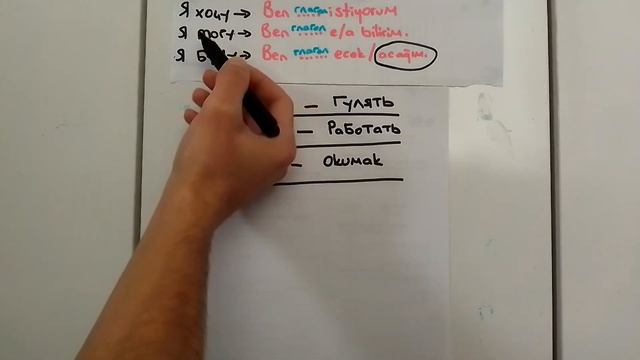 Я хочу → Ben глагол istiyorum
Я могу → Ben глагол e/a bilirim.
Я → Ben глагол ecek / acağım.
– Гулять
– Работать
– Okumak